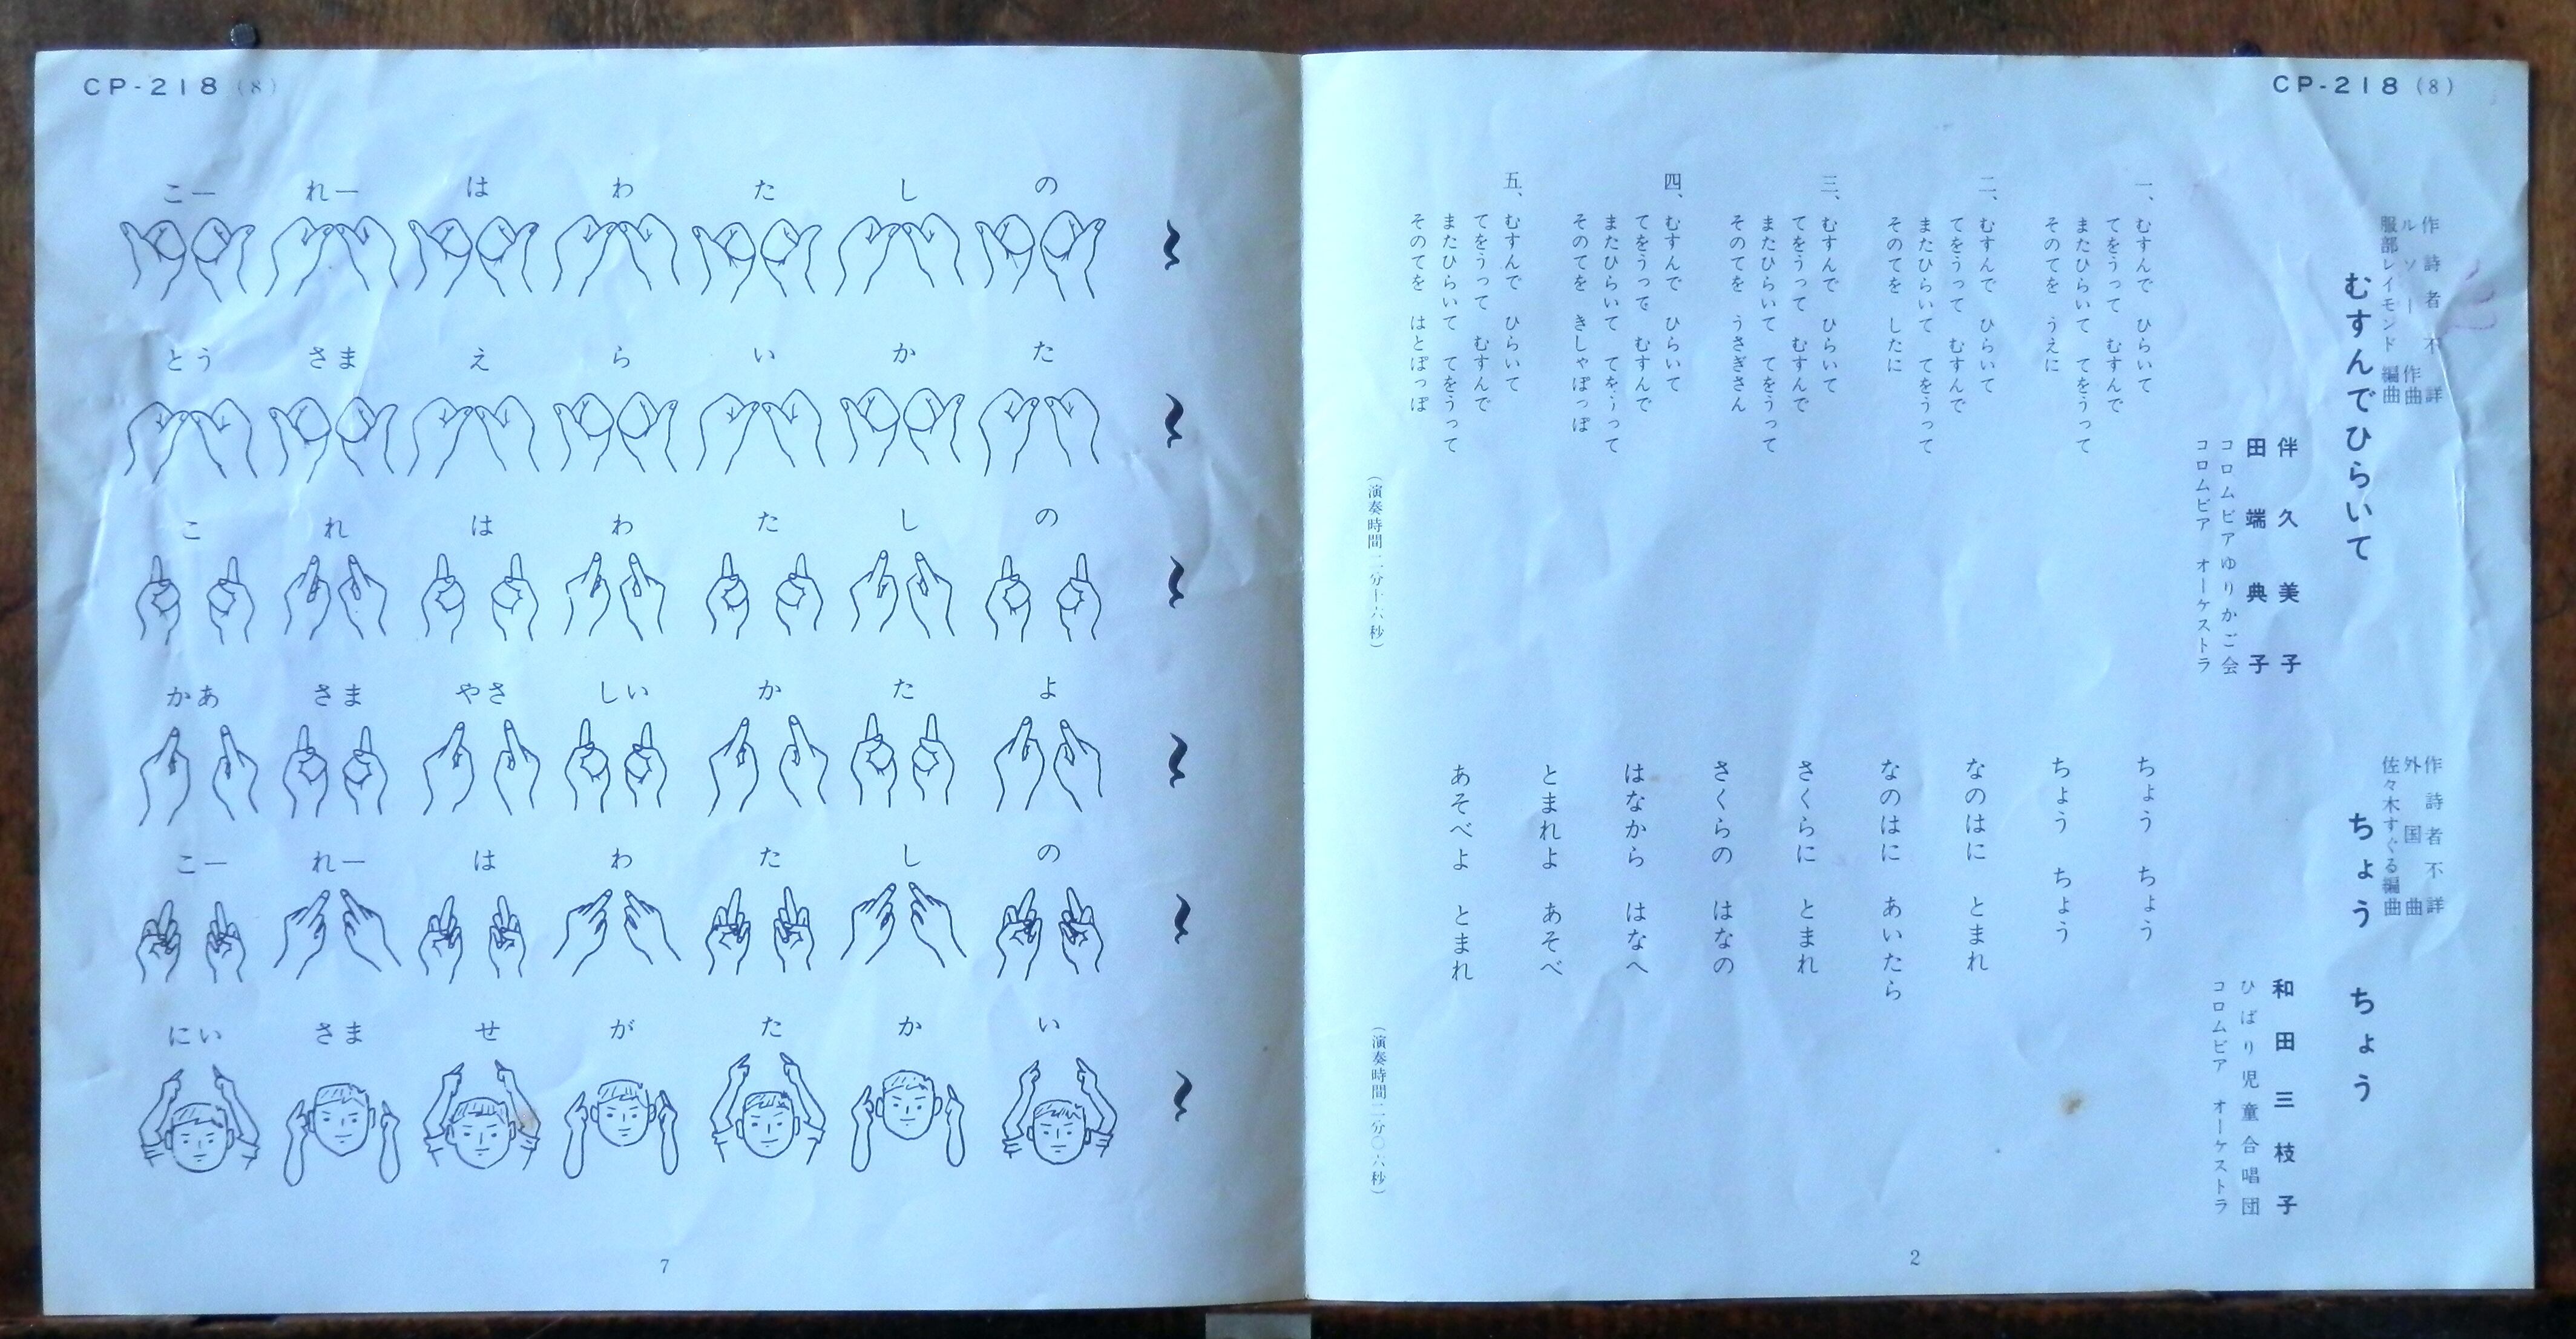 CP-218 (8)
こー れー は わ た し の
とう さま え ら い か た
こ れ は わ た し の
かあ さま やさ しい か た よ
こー れー は わ た し の
にい さま せ が た か い
7
CP-218 (8)
作詩者不詳
ルソー 作曲
服部レイモンド 編曲
むすんでひらいて
伴久美子
田端典子
コロムビアゆりかご会
コロムビア オーケストラ
一、むすんで ひらいて
てをうって むすんで
またひらいて てをうって
そのてを うえに
二、むすんで ひらいて
てをうって むすんで
またひらいて てをうって
そのてを したに
三、むすんで ひらいて
てをうって むすんで
またひらいて てをうって
そのてを うさぎさん
四、むすんで ひらいて
てをうって むすんで
またひらいて てをうって
そのてを きしゃぽっぽ
五、むすんで ひらいて
てをうって むすんで
またひらいて てをうって
そのてを はとぽっぽ
(演奏時間二分十六秒)
作詩者不詳
外国曲
佐々木すぐる編曲
ちょう ちょう
和田三枝子
ひばり児童合唱団
コロムビア オーケストラ
ちょう ちょう
ちょう ちょう
なのはに とまれ
なのはに あいたら
さくらに とまれ
さくらの はなの
はなから はなへ
とまれよ あそべ
あそべよ とまれ
(演奏時間二分〇六秒)
2